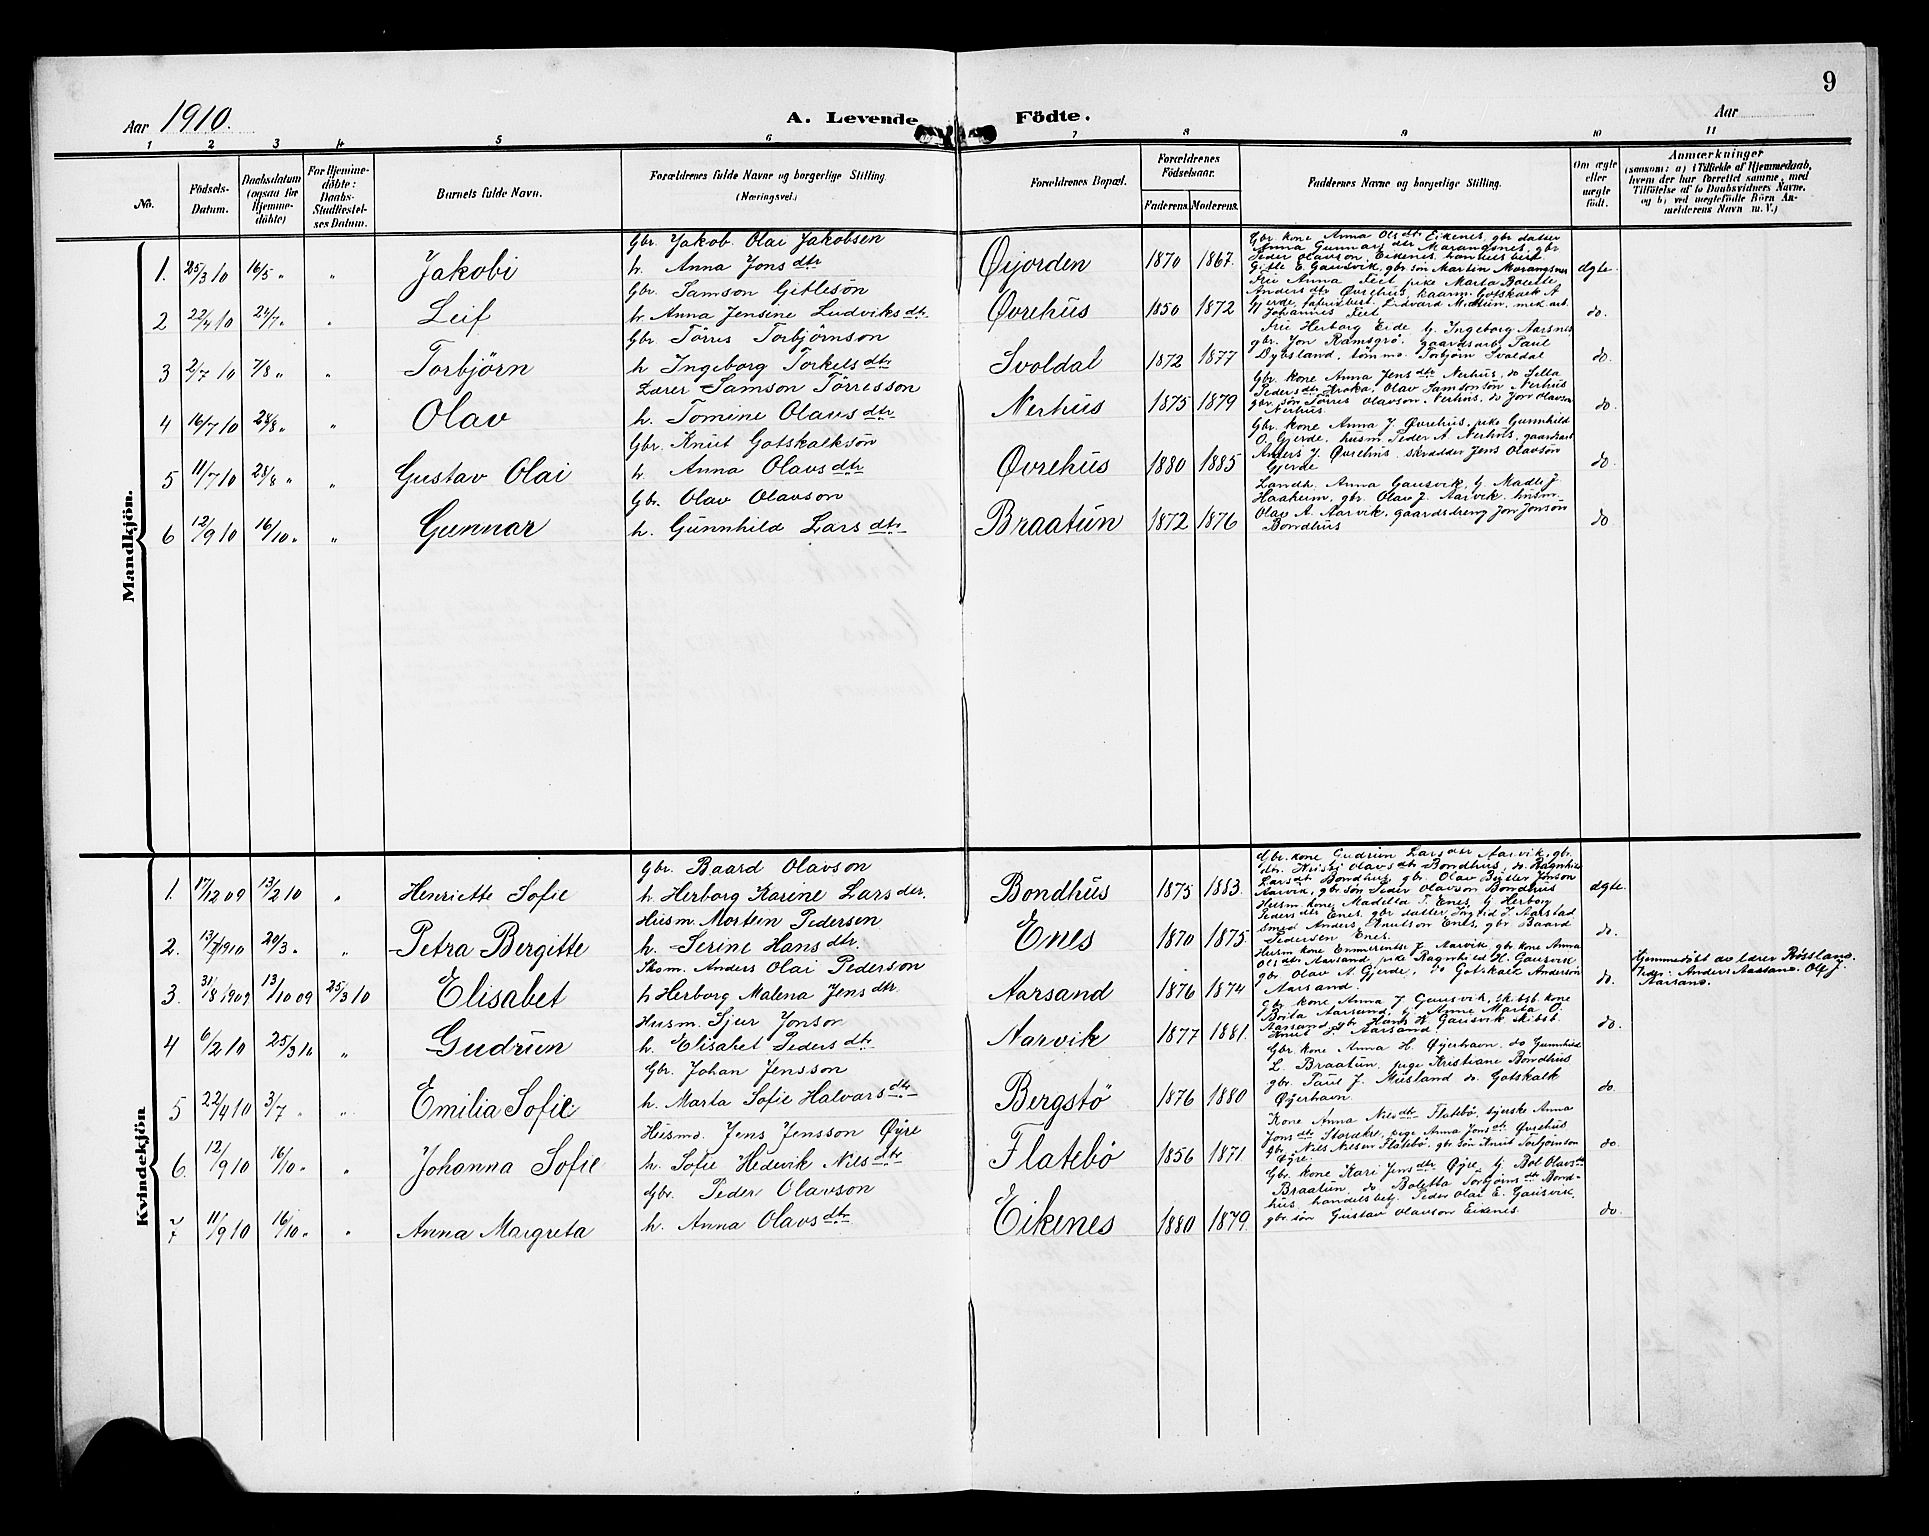 9
Aar 1910.
A. Levende Födte.
Aar
1 2 3 4 5 6 7 8 9 10 11
No.
Födsels-Datum.
Daabsdatum (ogsaa for Hjemmedöbte)
For Hjemmedöbte: Daabs-Stadfæstelses Datum.
Barnets fulde Navn.
Forældrenes fulde Navne og borgerlige Stilling. (Næringsvei.)
Forældrenes Bopæl.
Forældrenes Födselsaar.
Faderens. Moderens.
Faddernes Navne og borgerlige Stilling.
Om ægte eller uægte födt.
Anmærkninger
(saasom: a) i Tilfælde af Hjemmedaab, hvem der har forrettet samme, med Tilföielse af to Daabsvidners Navne, og b) ved uægtefödte Börn Anmelderens Navn m. V.)
Mandkjön.
1. 25/3 10 16/5 „ „ Jakobi
Gbr. Jakob Olai Jakobsen
h. Anna Jonsdtr
Øijorden 1870 1867.
Gbr. kone Anna Olsdtr Eikenes, gbr datter
Anna Gunnarsdtr Marangsnes, gbr
Peder Olavson, Eikenes,
Gitle E. Gausvik, gbr søn Martin Marangsnes
ægte.
2 22/4 10 24/7 „ „ Leif
Gbr. Samson Gitlesön
h. Anna Jensine Ludviksdtr.
Øvrehus 1850 1872
Fru Anna Feet pike Marta Bolette
Andersdtr Øvrehus, Gotskalk A
Gjerde,
Johannes Feet
do.
3 2/7 10 7/8 „ „ Torbjörn
Gbr Törris Torbjörnson
h Ingeborg Torkelsdtr
Svoldal 1872 1877
Fru Herborg Eide G. Ingeborg Aarsnes
gbr. Jon Ramsgrø, gaardsarb Paul
Dybsland, tømm. Torbjørn Svoldal
do.
4 16/7 10 28/8 „ „ Olav
Lærer Samson Törresson
h. Tomine Olavsdtr
Nerhus 1875 1879
Gbr. kone Anna Jensdtr Nerhus, do Silla
Pedersdtr Kroka, Olav Samsonsön Nerhus
gbr. søn Törris Olavson, Nerhus, do Jon Olavson
Nerhus.
do.
5 11/7 10 28/8 „ „ Gustav Olai
Gbr. Knut Gotskalksön
h. Anna Olavsdtr
Øvrehus 1880 1885
Gbr. kone Anna J. Øvrehus, pike Gunnhild
O. Gjerde, husm Peder A. Nerhus,
Anders J. Øvrehus, skrædder Jens Olavsön
Gjerde
do.
6 12/9 10 16/10 „ „ Gunnar
Gbr. Olav Olavson
h. Gunnhild Larsdtr.
Braatun 1872 1876
Landh. Anna Gausvik, G Madli J.
Haaheim, gbr. Olav J. Aarvik, husm.
Olav A. Aarvik, gaardsdreng Jon Jonsön
Bondhus
do
Kvindekjön
1. 17/12 09 13/2 10 „ Henriette Sofie
Gbr Baard Olavson
h Herborg Karine Larsdtr.
Bondhus 1875 1883.
Gbr. kone Gudrun Larsdtr Aarvik, gbr.
dtr. Kristi Olavsdtr Bondhus, do Ragnhild
Larsdt Bondhus, gbr. Olav Jonson
Aarvik, gbr søn Peder Olavson Bondhus
ægte.
2. 13/1 1910 20/3 „ „ Petra Bergitte
Husm. Mortein Pedersen
h. Serine Hansdtr.
Enes 1870 1875
Husm. kone Madella T. Enes G Herborg
Pedersdtr Enes, gbr datter Ingrid J. Aarstad
smed Anders Knutson Enes, gbr. Baard
Pedersen Enes.
do.
3. 31/8 1909 13/10 09 25/3 10 Elisabet
Skom. Anders Olai Pederson
h Herborg Malena Jensdtr.
Aarsand 1876 1874
Husm kone Emmerentse J. Aarvik, gbr kone Anna
Olsdtr Aarsand, pike Ragnhild H. Gausvik
gbr Olav A. Gjerde, do Gotskalk Andersön
Aarsand.
do.
Hjemmedøbt av lærer Røssland.
Anders Aarsand. Olaf J.
Aarsand.
4 6/2 10 25/3 10 „ Gudrun
Husm. Sjur Jonson
h. Elisabet Pedersdtr
Aarvik 1877 1881.
Gbr kone Anna J Gausvik, skibsb. kone
Brita Aarsand, G Anne Marta O.
Aarsand, gbr Hans H Gausvik, skibsb.
Knut J. Aarsand
do.
5 22/4 10 3/7 „ „ Emilia Sofie
Gbr. Johan Jensson
h. Marta Sofie Halvarsdtr
Bergstö 1876 1880
Gbr kone Anna H. Øyerhavn, do Gunnhild
L. Braatun, pige Kristiane Bondhus
gbr. Paul J. Musland do. Gotskalk
Øyerhavn.
do.
6. 12/9 10 16/10 „ „ Johanna Sofie
Husmd. Jens Jensson Øyre
h. Sofie Hedevik Nilsdtr
Flatebö 1856 1871
Kone Anna Nilsdtr Flatebö, syerske Anna
Jonsdtr Stordkr, pige Anna Jonsdt. Øvrehus
gbr. Nils Nilsen Flatebö, gbr søn Knut Torbjörnson
Øyre.
do.
7 11/9 10 16/10 „ „ Anna Margreta
Gbr. Peder Olavson
h. Anna Olavsdtr
Eikenes 1880 1879
Gbr. kone Kari Jensdtr Øyre, G Bol Olavsdtr
Braatun, do Boletta Torbjørnsdtr Bond-
hus, handelsbetj. Peder Olai E. Gausvik,
gbr søn Gustav Olavson Eikenes.
do.